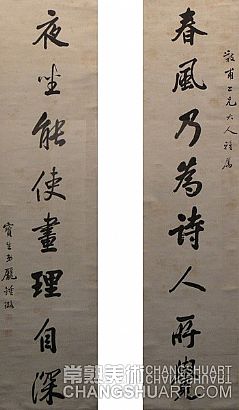 甫二兄大人雅屬
春風乃為詩人所覺
夜坐能使畫理自深
寶生弟龐鍾璐
常熟美術 CHANGSHUART
CHANGSHUART.COM